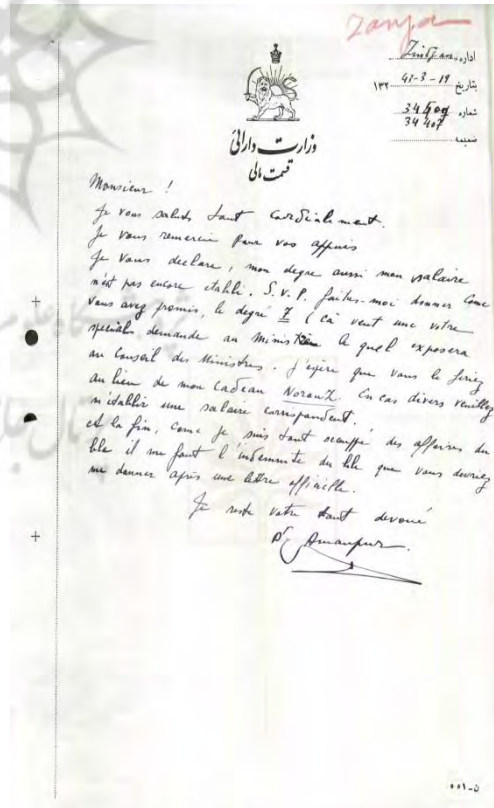 Zanja
اداره Zindjan
بتاریخ 19-3-41 ۱۳۲
شماره 34409
34407
ضمیمه
وزارت دارائی
قسمت مالی
Monsieur !
Je vous saluds tant cardialement.
Je vous remercie pour vos appuis
Je vous declare, mon degre aussi mon salaire
n'est pas encore etabli. S.V.P. faites-moi donner come
vous avez promis, le degré 7 (ca veut une votre
speciale demande au Ministère le quel exposera
au Conseil des Ministres. J'espère que vous le feriez
au lieu de mon Cadeau Norouz. En cas divers veuillez
m'établir une salaire correspondent.
A la fin, come je suis tant occuppé des affaires du
ble il me faut l'indemnite du ble que vous devriez
me donner après une lettre officielle.
Je reste votre tant devoué
Dr Amanpur.
ن-۵۵۱